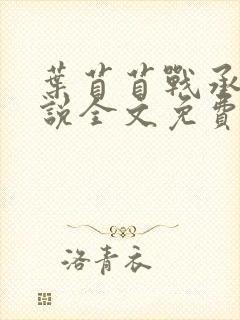 葉苜苜戰承
說全文免費
洛青衣